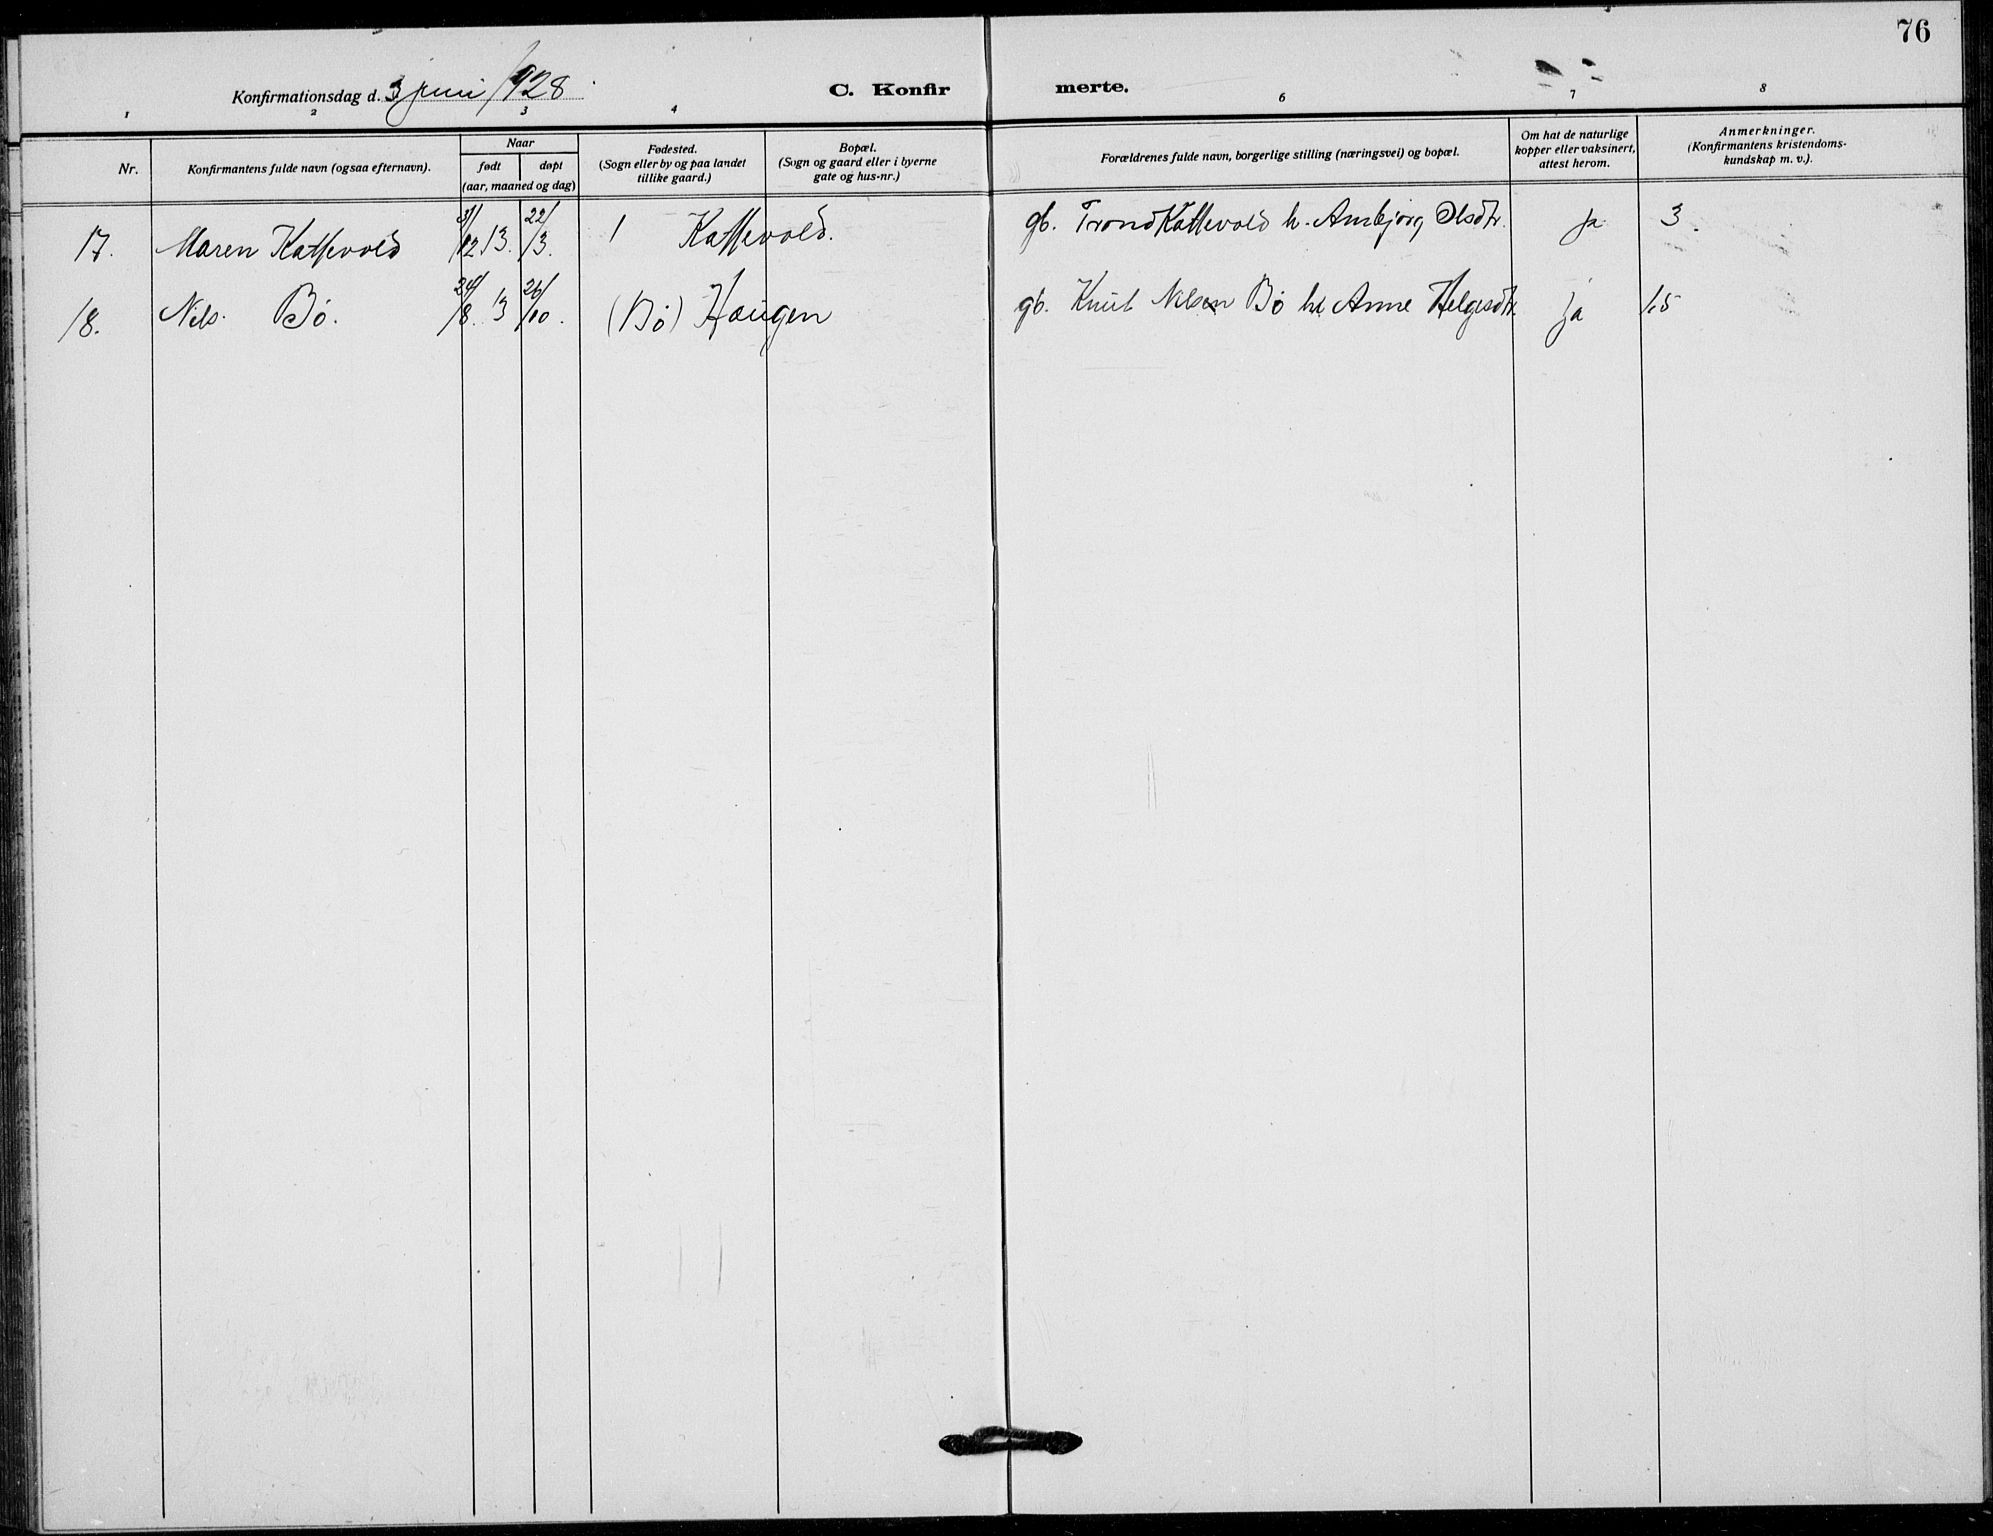 76
Konfirmationsdag d. 3 juni 1928.
C. Konfirmerte.
1 2 3 4 6 7 8
Nr.
Konfirmantens fulde navn (ogsaa efternavn).
Naar
født døpt
(aar, maaned og dag)
Fødested.
(Sogn eller by og paa landet
tillike gaard.)
Bopæl.
(Sogn og gaard eller i byerne
gate og hus-nr.)
Forældrenes fulde navn, borgerlige stilling (næringsvei) og bopæl.
Om hat de naturlige
kopper eller vaksinert,
attest herom.
Anmerkninger.
(Konfirmantens kristendoms-
kundskap m. v.).
17. Maren Kattevold 12 13. 22/13. Kattevold. gb. Trond Kattevold h. Ambjørg Olsdtr. ja 3.
18. Nils Bø. 24/8 13 26/10. (Bø) Haugen gb. Knut Nilsen Bø h Anne Helgesdtr. ja 1.5